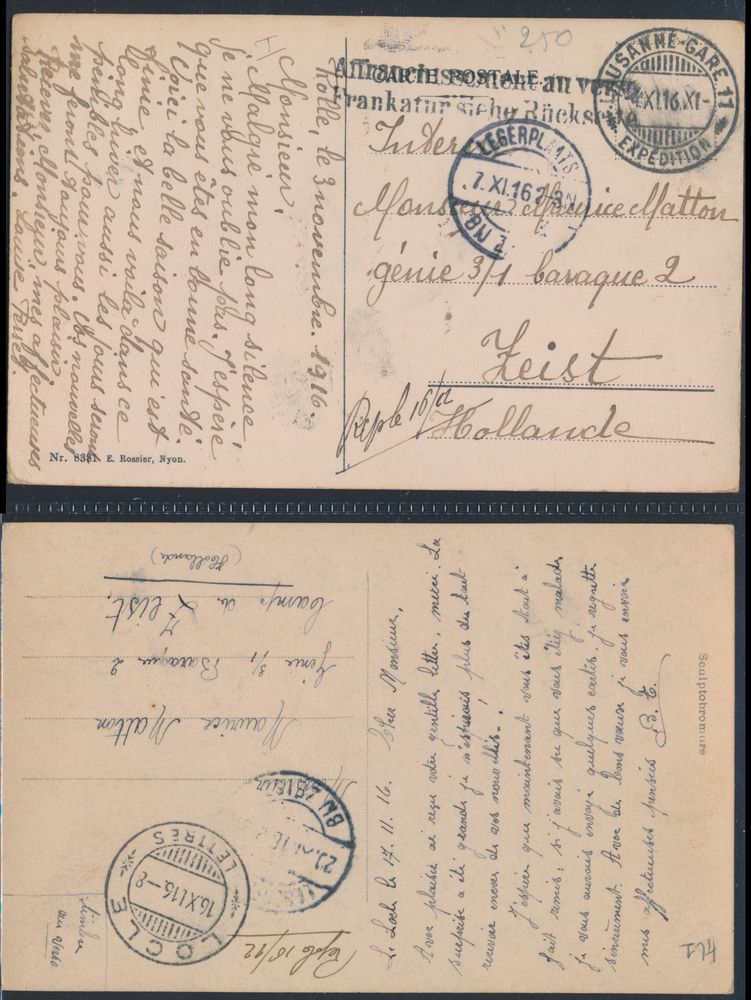 250
CARTE POSTALE
Affranchissement au verso
Frankatur siehe Rückseite
LAUSANNE-GARE 11
XI.16.XI-
EXPÉDITION
LEGERPLAATS
7.XI.16
BIJ Z
Rolle, le 3 novembre. 1916.
Monsieur,
Malgré mon long silence,
je ne vous oublie pas. J'espère
que vous êtes en bonne santé.
Voici la belle saison qui est
finie et nous voilà dans ce
long hiver aussi les jours seront
pénibles pour vous. Vos nouvelles
me feront toujours plaisir.
Recevez, Monsieur, mes affectueuses
salutations. Louise
Monsieur Maurice Matton
génie 3/1 baraque 2
Zeist
Hollande
Repb 16/11
Nr. 8381. E. Rossier, Nyon.
Maurice Matton
Génie 3/1 Baraque 2
Camp de Zeist,
(Hollande)
timbre
au verso
LOCLE
16.XI.16-8
LETTRES
BIJ ZEIST
Repb 10/12
Le Locle le 17. 11. 16.
Cher Monsieur,
Avec plaisir ai reçu votre gentille lettre, merci. La
surprise a été grande je n'espérais plus du tout
recevoir encore de vos nouvelles!
J'espère que maintenant vous êtes tout à
fait remis; si j'avais su que vous étiez malade,
je vous aurais envoyé quelques cartes, je regrette
sincèrement. Avec de bons vœux je vous envoie
mes affectueuses pensées B. E.
Sculptobromure